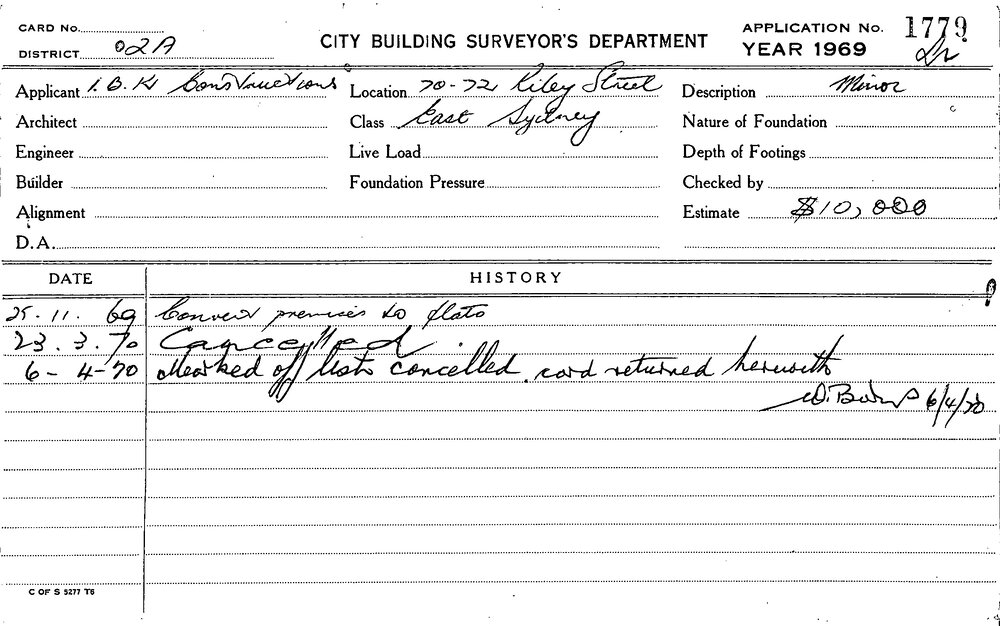 CARD No.
DISTRICT 02A
CITY BUILDING SURVEYOR'S DEPARTMENT
APPLICATION No. 1779
YEAR 1969
Applicant I.B.K Constructions Location 70-72 Riley Street Description Minor
Architect Class East Sydney Nature of Foundation
Engineer Live Load Depth of Footings
Builder Foundation Pressure Checked by
Alignment Estimate $10,000
D.A.
DATE HISTORY
25.11.69 Convert premises to flats
23.3.70 Cancelled
6-4-70 Marked off lists cancelled. card returned herewith
6/4/70
C OF S 5277 T6